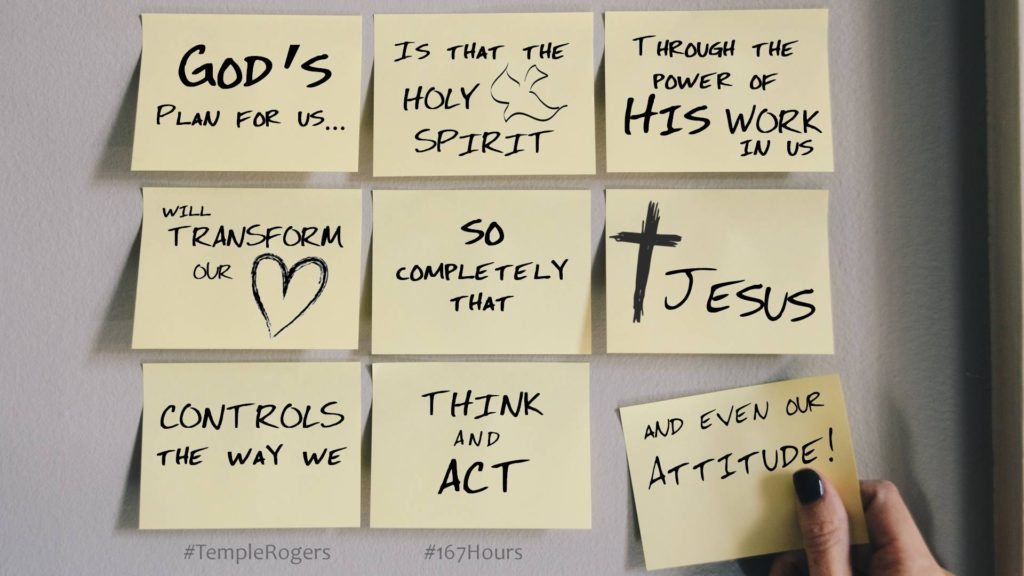 God's
Plan for us...
Is that the
Holy
Spirit
Through the
power of
His work
in us
will
transform
our
so
completely
that
Jesus
controls
the way we
think
and
act
and even our
Attitude!
#TempleRogers
#167Hours